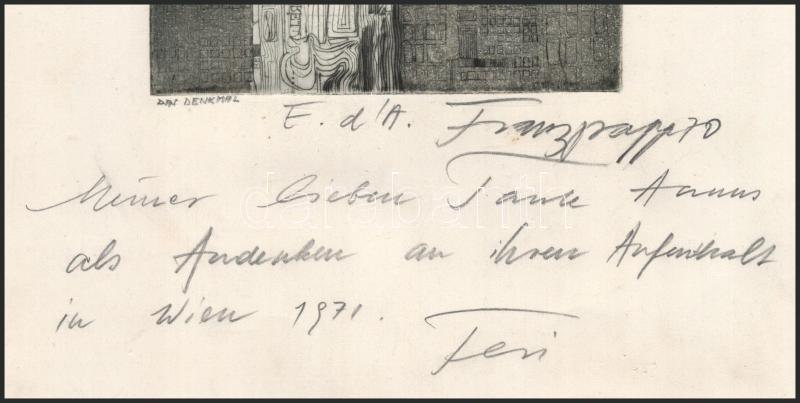 DAS DENKMAL
E. d'A. Franzpapp 70
Meiner lieben Tante
als Andenken an ihren Aufenthalt
in Wien 1971.
Feri
darabanth